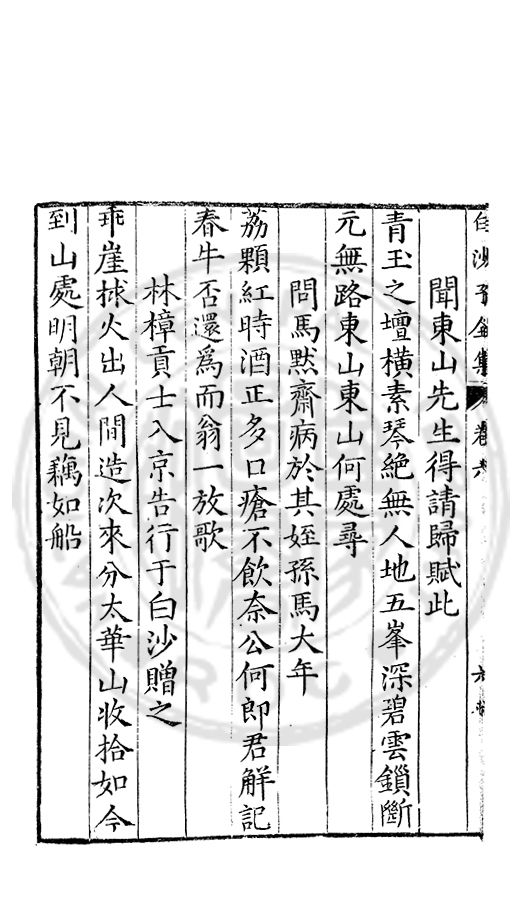 白沙子全集 卷六
聞東山先生得請歸賦此
青玉之壇橫素琴絶無人地五峯深碧雲鎖斷
元無路東山東山何處尋
問馬默齋病於其姪孫馬大年
荔顆紅時酒正多口瘡不飲奈公何郎君解記
春牛否還為而翁一放歌
林樟貢士入京告行于白沙贈之
乖崖捄火出人間造次來分太華山收拾如今
到山處明朝不見藕如船